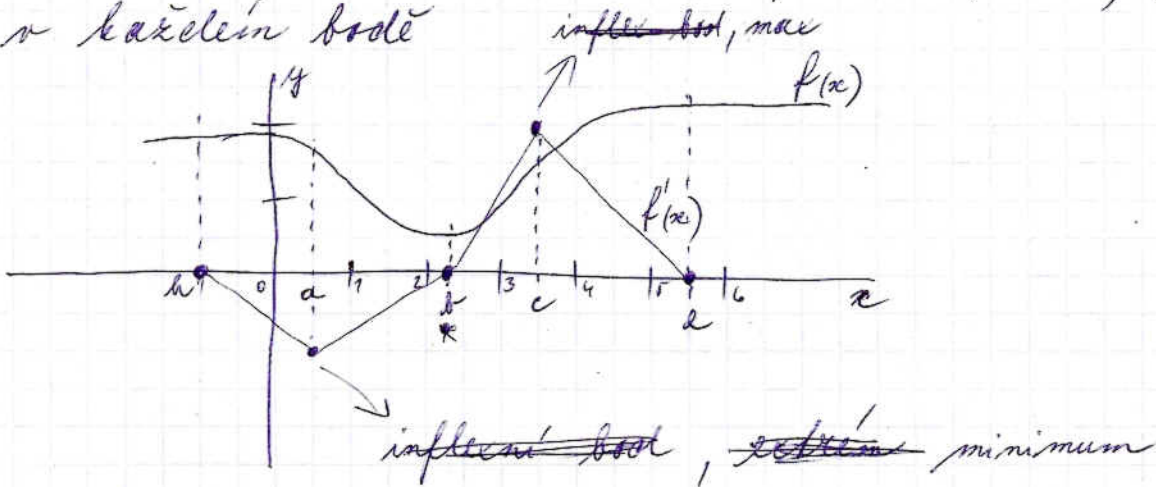 v každém bodě
inflex. bod, max
y
f(x)
f'(x)
h 0 a 1 2 b 3 c 4 5 d 6 x
*
inflexní bod, extrém minimum